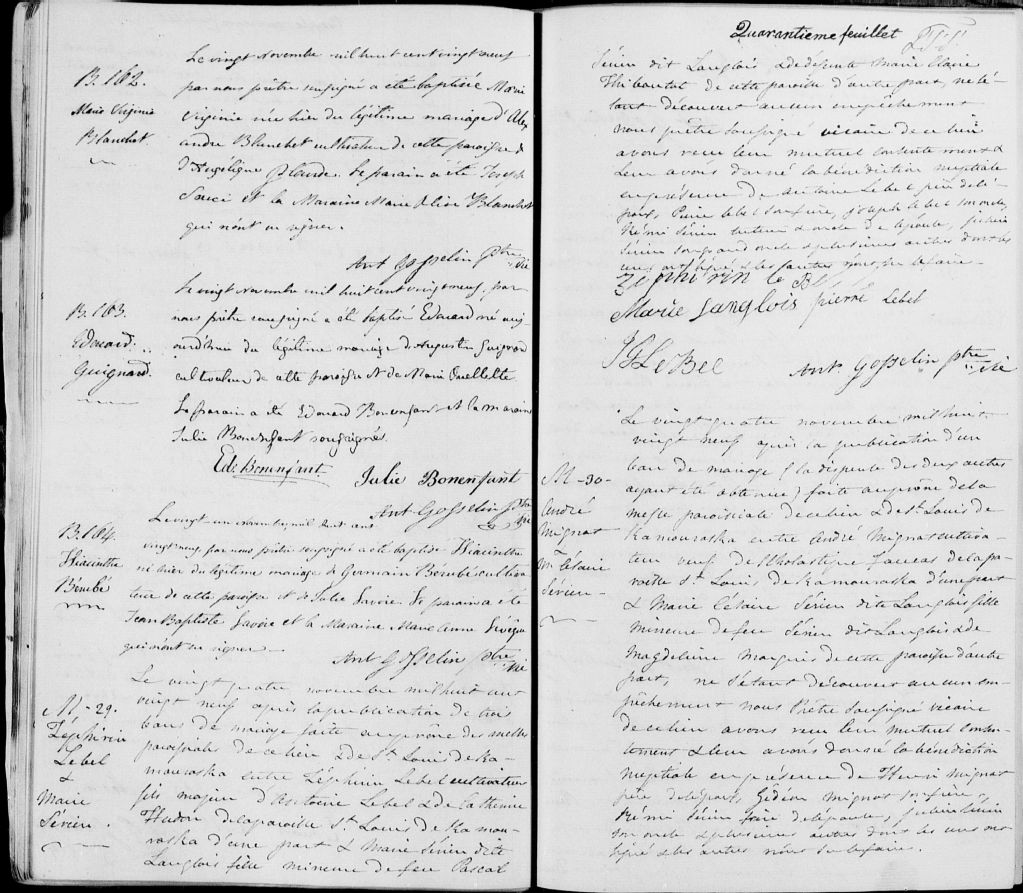 B. 162.
Marie Virginie
Blanchet
Le vingt novembre mil huit cent vingt neuf
par nous prêtre soussigné a été baptisée Marie
Virginie née hier du légitime mariage d'Alex
andre Blanchet cultivateur de cette paroisse &
d'Angélique Le parain a été Joseph
et la Maraine Marie Blanchet
qui n'ont su signer.
Ant Gosselin Ptre
Vic
B. 163.
Edouard
Guignard.
Le vingt novembre mil huit cent vingt neuf, par
nous prêtre soussigné a été baptisé Edouard né auj
ourd'hui du légitime mariage d'Augustin Guignard
cultivateur de cette paroisse & de Marie Ouellette
Le parain a été Edouard Bonenfant et la maraine
Julie Bonenfant soussignés.
Ed. Bonenfant.
Julie Bonenfant
Ant Gosselin Ptre
Vic
B. 164.
Hiacinthe
Bérubé
Le vingt un novembre mil huit cent
vingt neuf par nous prêtre soussigné a été baptisé Hiacinthe
né hier du légitime mariage de Germain Bérubé cultiva
teur de cette paroisse et de Julie Savoie Le parain a été
Jean Baptiste Savoie et la Maraine Marie Anne Lévêque
qui n'ont su signer
Ant Gosselin Ptre
Vic
M - 29.
Zéphirin
Lebel
&
Marie
Sérien.
Le vingt quatre novembre mil huit cent
vingt neuf après la publication de trois
bans de mariage faite au prône des messes
paroissiales de ce lieu & de St. Louis de Ka-
mouraska entre Zéphirin Lebel cultivateur
fils majeur d'Antoine Lebel & de Catherine
Hudon de la paroisse St. Louis de Kamou-
raska d'une part & Marie Sérien dite
Langlois fille mineure de feu Pascal
Quarantieme feuillet
Sérien dit Langlois & de défunte Marie Claire
Thibautot de cette paroisse d'autre part, ne s'é-
tant découvert aucun empêchement
nous prêtre soussigné vicaire de ce lieu
avons reçu leur mutuel consentement &
leur avons donné la bénédiction nuptiale
en présence de Antoine Lebel père de l'é-
poux, Pierre Lebel son frère, Joseph Lebel son oncle,
Rémi Sérien tuteur & oncle de l'épouse, Julien
Sérien son grand oncle & plusieurs autres dont les
uns ont signé & les autres n'ont su le faire.
Zephirin le Bel
Marie Langlois pierre Lebel
Bt LeBel
Ant Gosselin Ptre
Vic
M - 30
André
Mignot
M. Césaire
Sérien -
Le vingt quatre novembre mil huit
vingt neuf après la publication d'un
ban de mariage (la dispense des deux autres
ayant été obtenue) faite au prône de la
messe paroissiale de ce lieu & de St. Louis de
Kamouraska entre André Mignot cultiva-
teur veuf de Scholastique Faucas de la pa-
roisse St. Louis de Kamouraska d'une part
& Marie Césaire Sérien dite Langlois fille
mineure de feu Sérien dit Langlois & de
Magdeleine Marquis de cette paroisse d'autre
part, ne s'étant découvert aucun em-
pêchement nous Prêtre soussigné vicaire
de ce lieu avons reçu leur mutuel consen-
tement & leur avons donné la bénédiction
nuptiale en présence de Henri Mignot
père de l'époux, Gédéon Mignot son frère,
Rémi Sérien frère de l'épouse, Julien Sérien
son oncle & plusieurs autres dont les uns ont
signé & les autres n'ont su le faire.